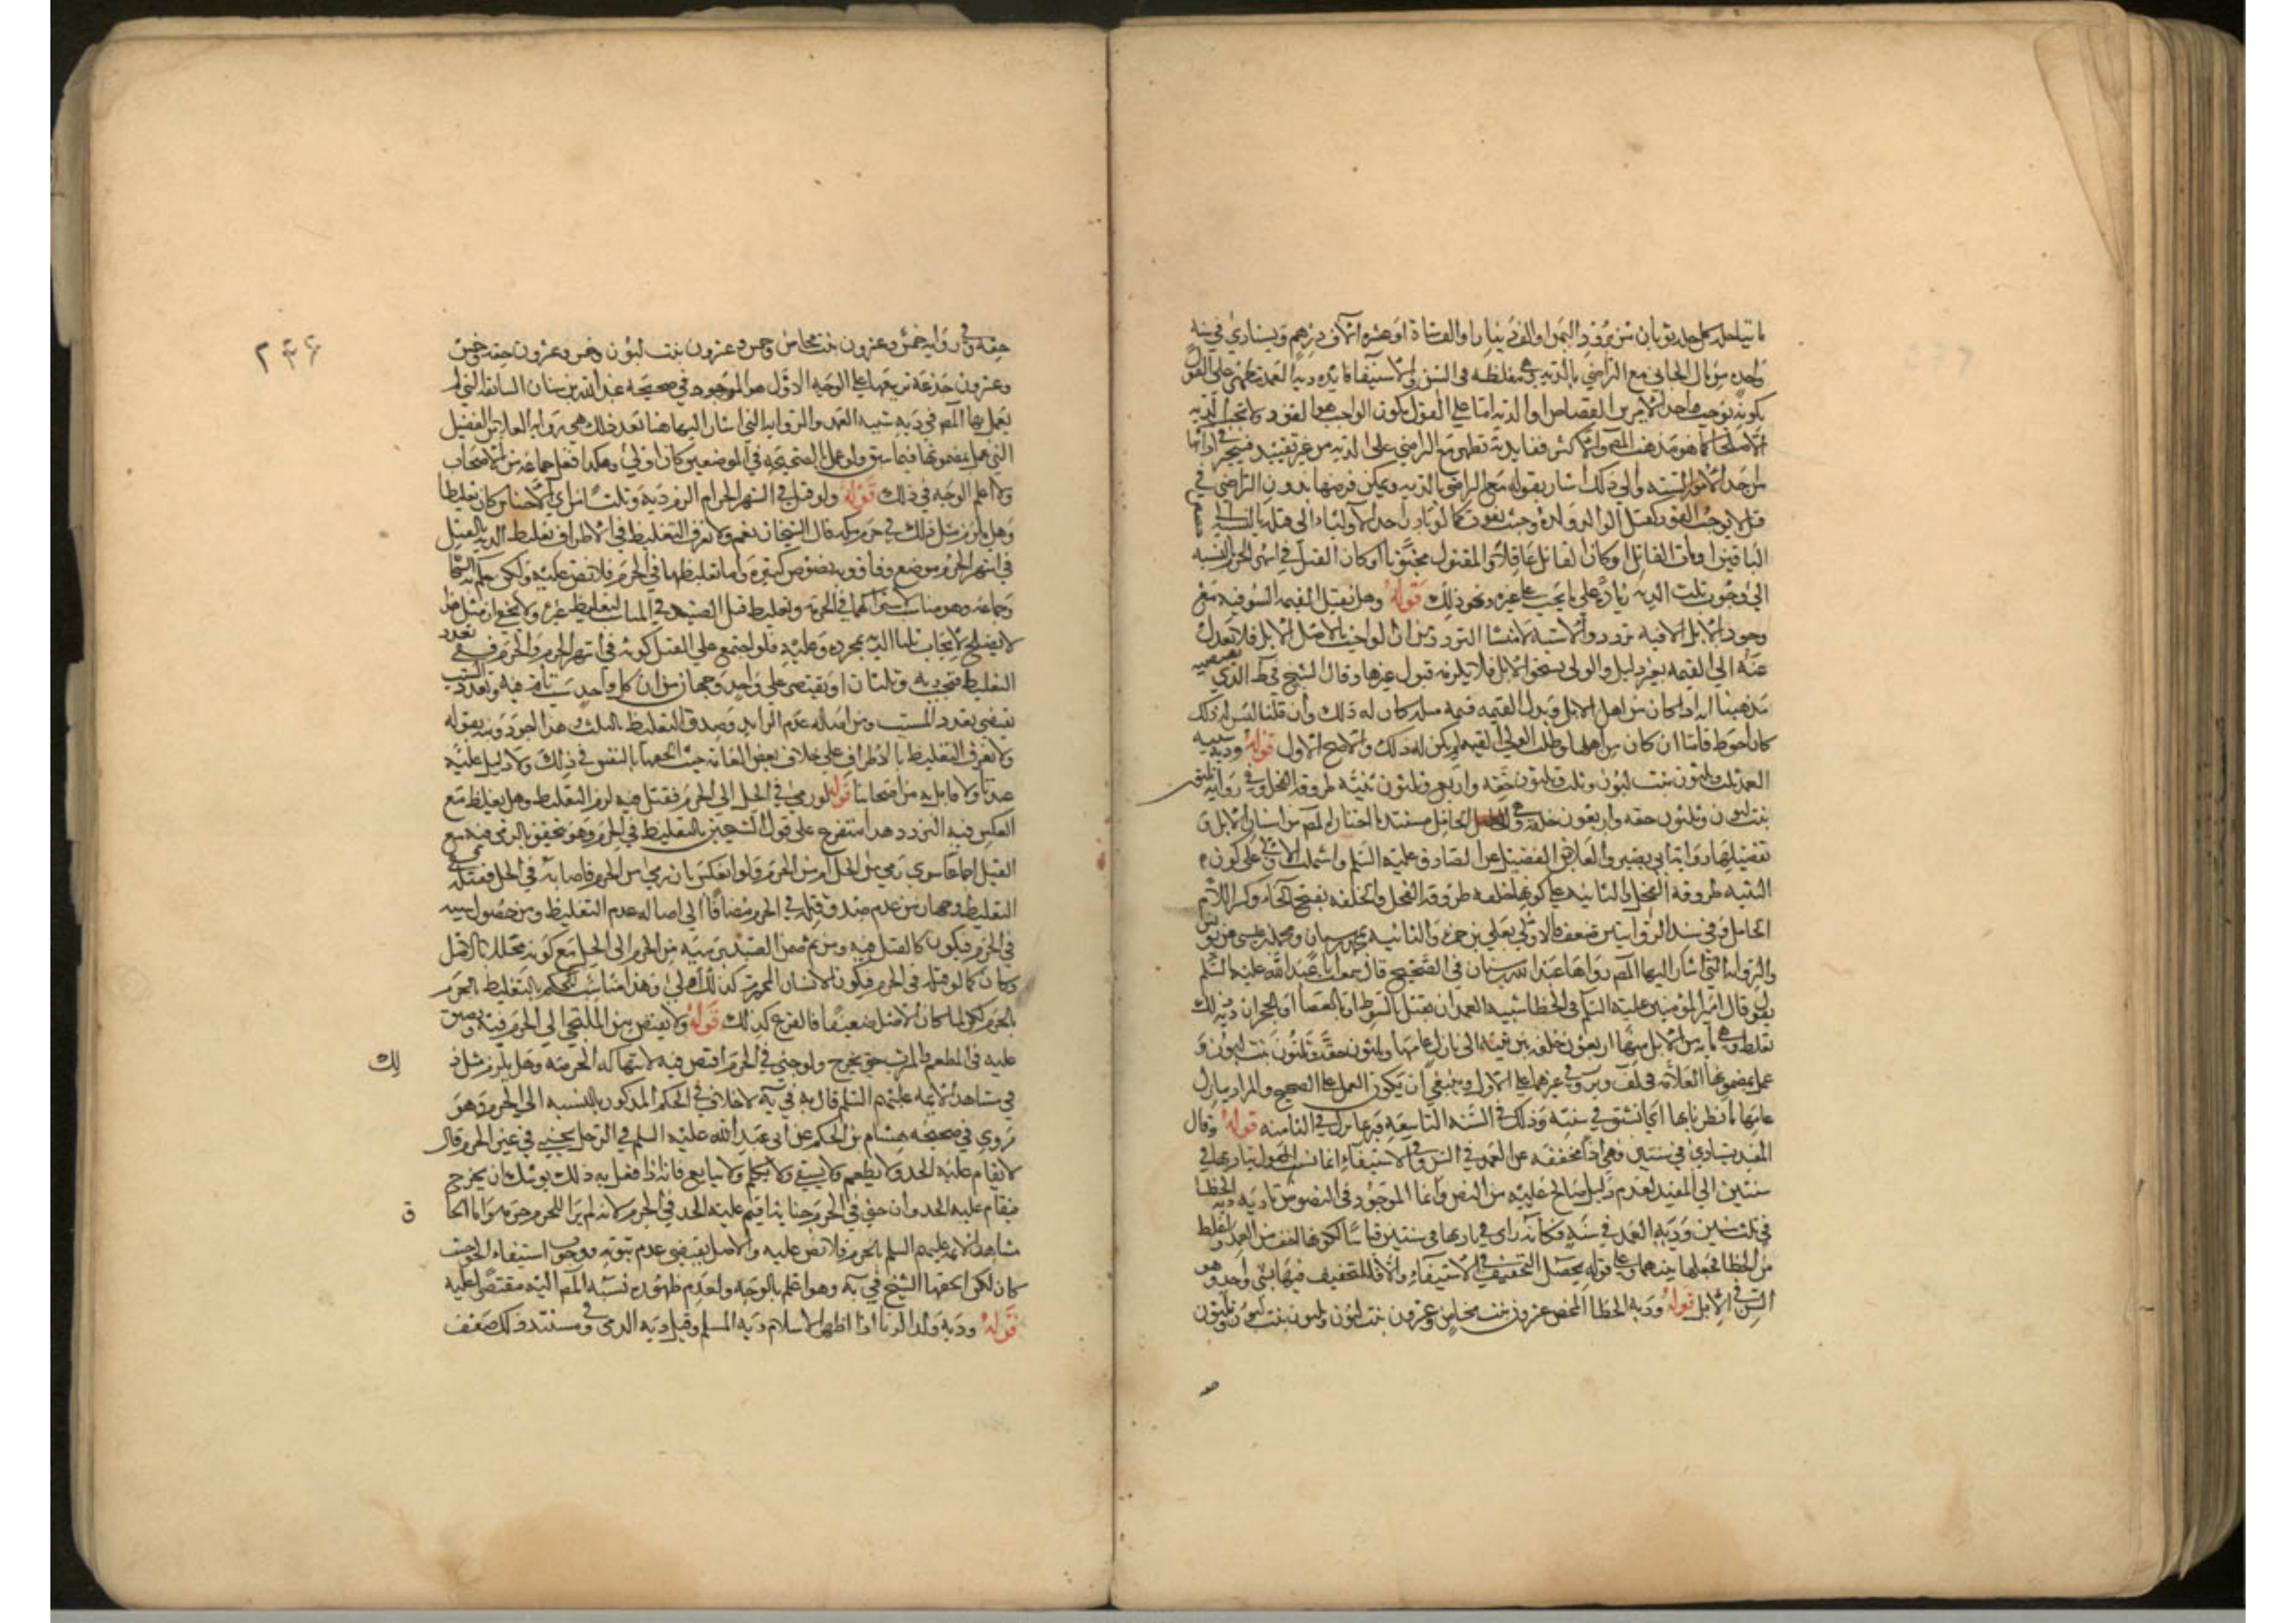 مائتا حلة كل حلة ثوبان من برود اليمن او الف دينار او الف شاة او عشرة الاف درهم ويستادي في سنة
واحدة من مال الجاني مع التراضي بالدية وهي مغلظة في السن والاستيفا فايدة دية العمد تظهر على القول
بكونه يوجب احد الامرين القصاص او الدية اما على القول بكون الواجب هو القود ولا تجب الدية
الا صلحا كما هو مذهب المصـ والاكثر ففايدته تظهر مع التراضي على الدية من غير تقييد فيتخير في ادائها
من احد الامور الستة والى ذلك اشار بقوله مع التراضي بالدية ويمكن فرضها بدون التراضي في
قتل لا يوجب القود كقتل الوالد ولده وحيث يفوت كما لو بادر احد الاولياء الى قتله بالنسبة الى
الباقين او مات القاتل او كان القاتل عاقلا والمقتول مجنونا او كان القتل في اشهر الحرم بالنسبة
الى وجوب ثلث الدية زيادة على ما يجب على غيره ونحو ذلك قوله وهل تقبل القيمة السوقية مع
وجود الابل الا فيه تردد والاشبه لا منشا التردد من ان الواجب بالاصل الابل فلا يعدل
عنه الى القيمة بغير دليل والولي يستحق الابل فلا يلزمه قبول غيرها وقال الشيخ في ط الذي يقتضيه
مذهبنا انه اذا كان من اهل الابل وبذل القيمة قيمة مثله كان له ذلك وان قلنا ليس له ذلك
كان احوط فاما ان كان من اهلها وطلب الولي القيمة لم يكن له ذلك والاصح الاول قوله ودية شبيه
العمد ثلث وثلثون بنت لبون وثلث وثلثون حقة واربع وثلثون ثنية طروقة الفحل وفي رواية ثلثون
بنت لبون وثلثون حقة واربعون خلفة وهي الحامل مستند ما اختاره المصـ من اسنان الابل و
تفصيلها روايتا ابي بصير والعلا بن الفضيل عن الصادق عليه السلم واشتملت الاولى على كون
الثنية طروقة الفحل والثانية على كونها خلفة طروقة الفحل والخلفة بفتح الخاء وكسر اللام
الحامل وفي سند الروايتين ضعف فالاولى بعلي بن حمزة والثانية بمحمد بن سنان ومحمد بن عيسى عن يونس
والرواية التي اشار اليها المصـ رواها عبد الله بن سنان في الصحيح قال سمعت ابا عبد الله عليه السلم
يقول قال امير المؤمنين عليه السلم في الخطا شبيه العمد ان يقتل بالسوط او بالعصا او بالحجر ان دية ذلك
تغلظ وهي مائة من الابل منها اربعون خلفة بين ثنية الى بازل عامها وثلثون حقة وثلثون بنت لبون و
عمل بمضمونها العلامة في لف وير وفي غيرهما على الاول وينبغي ان يكون العمل على الصحيح والمراد ببازل
عامها ما فطر نابها اي انشق في سنته وذلك في السنة التاسعة وربما بزل في الثامنة قوله وقال
المفيد يستادي في سنتين فهي اذا مخففة عن العمد في السن وفي الاستيفاء انما نسب القول بتاديتها في
سنتين الى المفيد لعدم دليل صالح عليه من النص وانما الموجود في النصوص تادية دية الخطا
في ثلث سنين ودية العمد في سنة وكانه راى تاديتها في سنتين قياسا لكونها اخف من العمد واغلظ
من الخطا فجعلها بينهما وعلى قوله يحصل التخفيف في الاستيفاء والا فالتخفيف فيها بشي واحد وهو
السن في الابل قوله ودية الخطا المحض عشرون بنت مخاض وعشرون بنت لبون وثلثون بنت لبون وثلثون
حقة وفي رواية خمس وعشرون بنت مخاض وخمس وعشرون بنت لبون وخمس وعشرون حقة وخمس
وعشرون جذعة تربيعها على الوجه الاول هو الموجود في صحيحة عبد الله بن سنان السابقة التي لم
يعمل بها المصـ في دية شبيه العمد والرواية التي اشار اليها هنا بعد ذلك هي رواية العلا بن الفضيل
التي عمل بمضمونها فيما سبق ولو عمل بالصحيحة في الموضعين كان اولى وهكذا فعل جماعة من الاصحاب
ولا اعلم الوجه في ذلك قوله ولو قتل في الشهر الحرام الزم دية وثلثا من اي الاجناس كان تغليظا
وهل يلزم مثل ذلك في حرم مكة قال الشيخان نعم ولا نعرف التغليظ في الاطراف تغليظ الدية بالقتل
في اشهر الحرم موضع وفاق وبه نصوص كثيرة واما تغليظها في الحرم فلا نص عليه ولكن حكم به الشيخان
وجماعة وهو مناسب لاشتراكهما في الحرمة وتغليظ قتل الصيد فيه المناسب لتغليظ غيره ولا يخفى ان مثل هذا
لا يصلح لايجاب ثلث الدية بمجرده وعليه فلو اجتمع على القتل كونه في اشهر الحرم والحرم ففي تعدد
التغليظ فتجب دية وثلثان او يقتصر على واحد وجهان من ان كل واحد سبب تام فيه وتعدد السبب
يقتضي تعدد المسبب ومن اصالة عدم الزايد وصدق التغليظ بالثلث هذا اجود ونبه بقوله
ولا نعرف التغليظ بالاطراف على خلاف بعض العامة حيث الحقها بالنفس في ذلك ولا دليل عليه
عندنا ولا قايل به من اصحابنا قوله لو رمى في الحل الى الحرم فقتل فيه لزم التغليظ وهل يغلظ مع
العكس فيه التردد هذا متفرع على قول الشيخين بالتغليظ في الحرم وهو متحقق بالرمي فيه مع
القتل اجماعا سوى رمي من الحل ام من الحرم ولو انعكس بان رمى من الحرم فاصابه في الحل فقتله ففي
التغليظ وجهان من عدم صدق قتله في الحرم مضافا الى اصالة عدم التغليظ ومن حصول سببه
في الحرم فيكون كالقتل فيه ومن ثم ضمن الصيد برميه من الحرم الى الحل مع كونه محللا بالاصل
وكان كما لو قتله في الحرم فيكون الانسان المحرم كذلك اولى وهذا مناسب للحكم بالتغليظ بالحرم
بالحرم لكن لما كان الاصل ضعيفا فالفرع كذلك قوله ولا يقتص من الملتجي الى الحرم فيه ويضيق
عليه في المطعم والمشرب حتى يخرج ولو جنى في الحرم اقتص فيه لانتهاكه الحرمة وهل يلزم مثل ذ لك
في مشاهد الائمة عليهم السلم قال به في يه لا خلاف في الحكم المذكور بالنسبة الى الحرم وهو
مروي في صحيحة هشام بن الحكم عن ابي عبد الله عليه السلم في الرجل يجني في غير الحرم قال
لا يقام عليه الحد ولا يطعم ولا يسقى ولا يكلم ولا يبايع فانه اذا فعل به ذلك يوشك ان يخرج
فيقام عليه الحد وان جنى في الحرم جناية اقيم عليه الحد في الحرم لانه لم ير للحرم حرمة واما الحا ق
مشاهد الائمة عليهم السلم بالحرم فلا نص عليه والاصل يقتضي عدم ثبوته ووجوب استيفاء الحق حيث
كان لكن الحقها الشيخ في يه وهو اعلم بالوجه ولعدم ظهوره نسبه المصـ اليه مقتصرا عليه
قوله ودية ولد الزنا اذا اظهر الاسلام دية المسلم وقيل دية الذمي وفي مستند ذلك ضعف